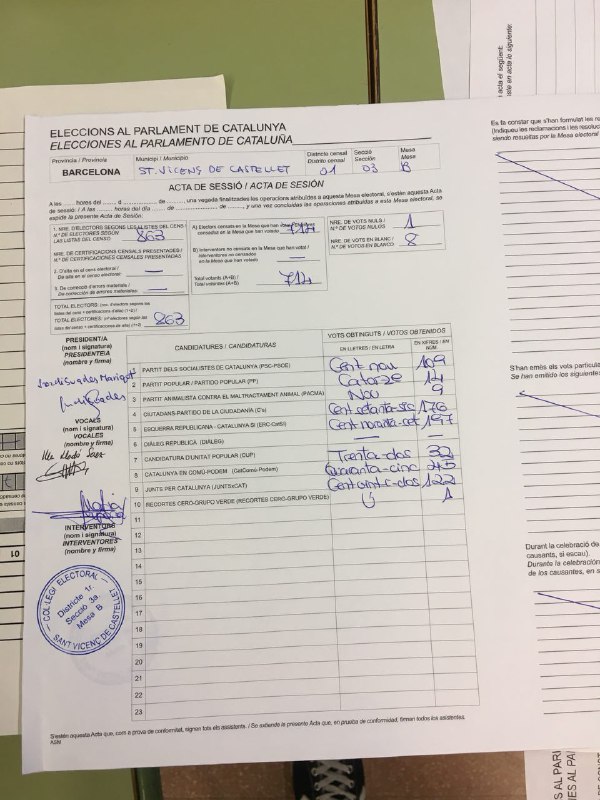 ELECCIONS AL PARLAMENT DE CATALUNYA
ELECCIONES AL PARLAMENTO DE CATALUÑA
Província / Provincia
BARCELONA
Municipi / Municipio
ST. VICENÇ DE CASTELLET
Districte censal
Distrito censal
01
Secció
Sección
03
Mesa
Mesa
B
ACTA DE SESSIÓ / ACTA DE SESIÓN
A les hores del d de una vegada finalitzades les operacions atribuïdes a aquesta Mesa electoral, s'estén aquesta Acta
de sessió / A las horas del día de de y una vez concluidas las operaciones atribuidas a esta Mesa electoral, se
expide la presente Acta de Sesión.
1. NRE. D'ELECTORS SEGONS LES LLISTES DEL CENS /
N.º DE ELECTORES SEGÚN
LAS LISTAS DEL CENSO
863
NRE. DE CERTIFICACIONS CENSALS PRESENTADES /
N.º DE CERTIFICACIONES CENSALES PRESENTADAS
2. D'alta en el cens electoral /
De alta en el censo electoral
3. De correcció d'errors materials /
De corrección de errores materiales
TOTAL ELECTORS:
TOTAL ELECTORES:
863
A) Electors censats en la Mesa que han votat /
censados en la Mesa que han votado
714
B) Interventors no censats en la Mesa que han votat /
Interventores no censados
en la Mesa que han votado
Total votants (A+B) /
Total votantes (A+B)
714
NRE. DE VOTS NULS /
N.º DE VOTOS NULOS
1
NRE. DE VOTS EN BLANC /
N.º DE VOTOS EN BLANCO
8
PRESIDENT/A
(nom i signatura)
PRESIDENTE/A
(nombre y firma)
VOCALS
(nom i signatura)
VOCALES
(nombre y firma)
INTERVENTORS
(nom i signatura)
INTERVENTORES
(nombre y firma)
CANDIDATURES / CANDIDATURAS
VOTS OBTINGUTS / VOTOS OBTENIDOS
EN LLETRES / EN LETRA
EN XIFRES / EN NÚM.
1 PARTIT DELS SOCIALISTES DE CATALUNYA (PSC-PSOE) Cent nou 109
2 PARTIT POPULAR / PARTIDO POPULAR (PP) Catorze 14
3 PARTIT ANIMALISTA CONTRA EL MALTRACTAMENT ANIMAL (PACMA) Nou 9
4 CIUTADANS-PARTIDO DE LA CIUDADANÍA (C's) Cent setanta-sis 176
5 ESQUERRA REPUBLICANA - CATALUNYA SÍ (ERC-CatSí) Cent noranta-set 197
6 DIÀLEG REPUBLICÀ (DIÀLEG) — —
7 CANDIDATURA D'UNITAT POPULAR (CUP) Trenta-dos 32
8 CATALUNYA EN COMÚ-PODEM (CatComú-Podem) Quaranta-cinc 45
9 JUNTS PER CATALUNYA (JUNTSxCAT) Cent vint-i-dos 122
10 RECORTES CERO-GRUPO VERDE (RECORTES CERO-GRUPO VERDE) U 1
11
12
13
14
15
16
17
18
19
20
21
22
23
COL·LEGI ELECTORAL
Districte 1r.
Secció 3a.
Mesa B
SANT VICENÇ DE CASTELLET
S'estén aquesta Acta que, com a prova de conformitat, signen tots els assistents. / Se extiende la presente Acta que, en prueba de conformidad, firman todos los asistentes.
Es fa constar que s'han formulat les re
(Indiqueu les reclamacions i les resoluc
siendo resueltas por la Mesa electoral
S'han emès els vots particula
Se han emitido los siguientes
Durant la celebració de
causants, si escau).
Durante la celebración
de los causantes, en s
acta el següent:
este en acta lo siguiente:
01